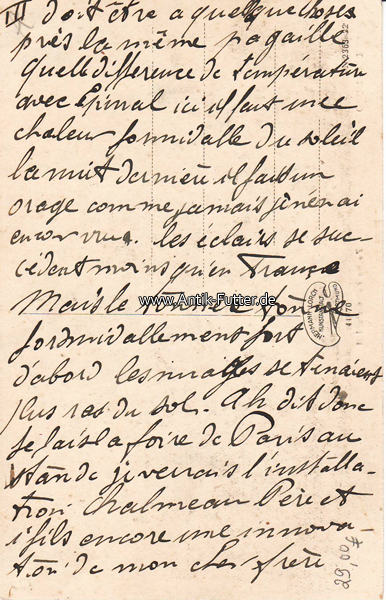 III doit être a quelque choses
près la même pagaille
quelle difference de température
avec Epinal ici il fait une
chaleur formidable du soleil
la nuit dernière il fait un
orage comme jamais je n'en ai
encor vue. les eclairs se suc-
cèdent moins qu'en France
Mais le tonnerre
www.Antik-Futter.de
formidablement fort
d'abord les nuages se tenaient
plus ras du sol. Ah dit donc
je fais la foire de Paris au
stande je verrais l'installa-
tion Chalmeau Père et
fils encore une innova-
tion de mon cher frère
29,00 €